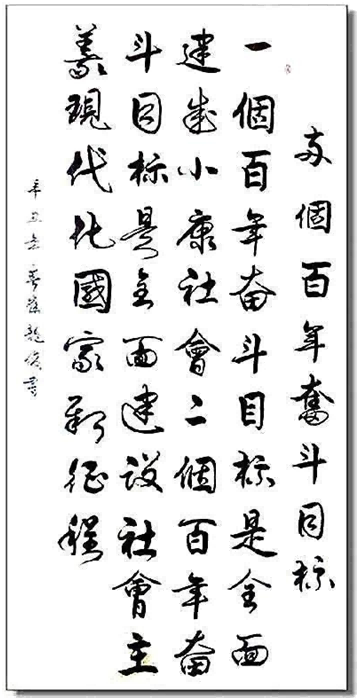 两個百年奮斗目标
一個百年奋斗目标是全面
建成小康社會二個百年奋
斗目标是全面建设社會主
義現代化國家新征程
辛丑年春龍俊書